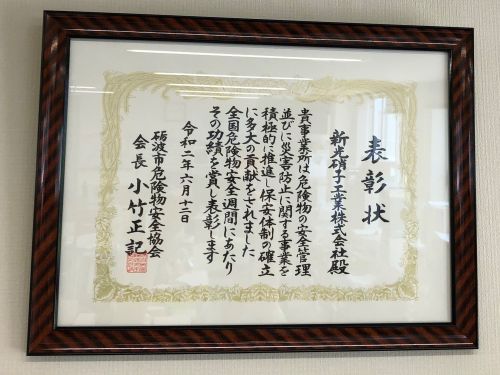 表彰状
新光硝子工業株式会社殿
貴事業所は危険物の安全管理
並びに災害防止に関する事業を
積極的に推進し保安体制の確立
に多大の貢献をされました
全国危険物安全週間にあたり
その功績を賞し表彰します
令和二年六月十二日
砺波市危険物安全協会
会長 小竹正記